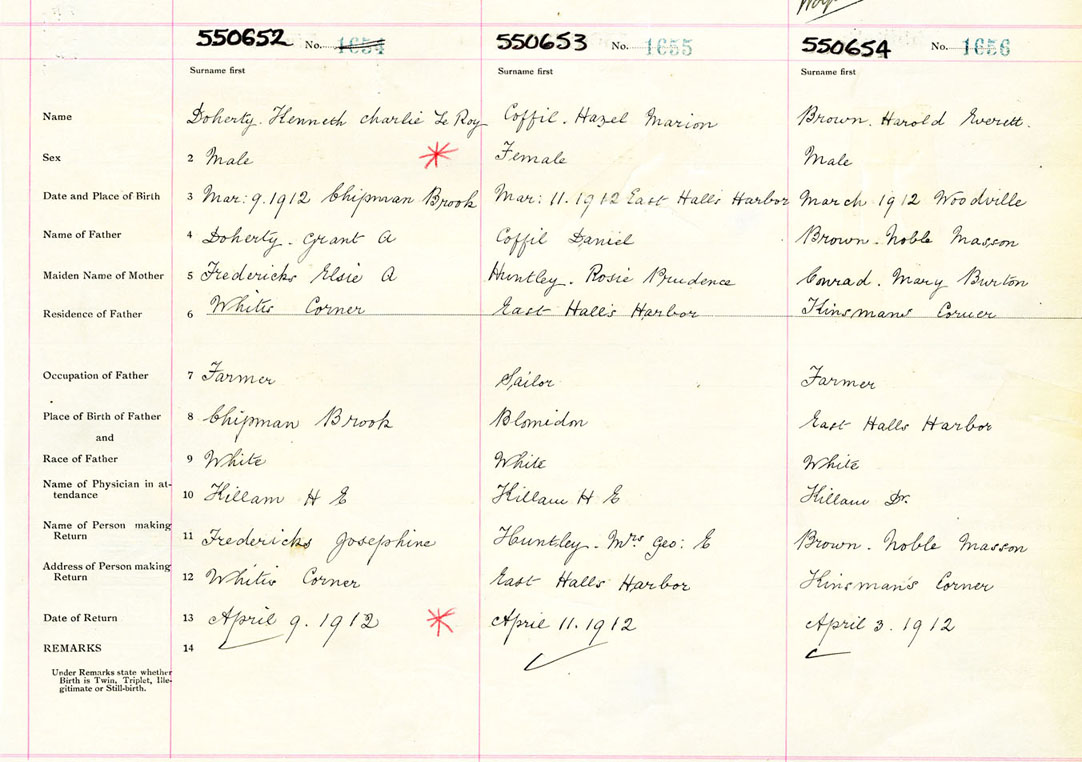 550652 No. 1654 550653 No. 1655 550654 No. 1656
Surname first Surname first Surname first
Name Doherty. Kenneth Charlie Le Roy Coffil. Hazel Marion Brown. Harold Everett.
Sex 2 Male Female Male
Date and Place of Birth 3 Mar: 9. 1912 Chipman Brook Mar: 11. 1912 East Halls Harbor March 1912 Woodville
Name of Father 4 Doherty. Grant A Coffil Daniel Brown. Noble Masson
Maiden Name of Mother 5 Fredericks Elsie A Huntley. Rosie Prudence Conrad. Mary Burton
Residence of Father 6 Whites Corner East Hall's Harbor Kinsman's Corner
Occupation of Father 7 Farmer Sailor Farmer
Place of Birth of Father 8 Chipman Brook Blomidon East Halls Harbor
and
Race of Father 9 White White White
Name of Physician in at-
tendance 10 Killam H E Killam H E Killam Dr.
Name of Person making
Return 11 Fredericks Josephine Huntley. Mrs Geo: E Brown. Noble Masson
Address of Person making
Return 12 Whites Corner East Halls Harbor Kinsman's Corner
Date of Return 13 April 9. 1912 April 11. 1912 April 3. 1912
REMARKS 14
Under Remarks state whether
Birth is Twin, Triplet, Ille-
gitimate or Still-birth.